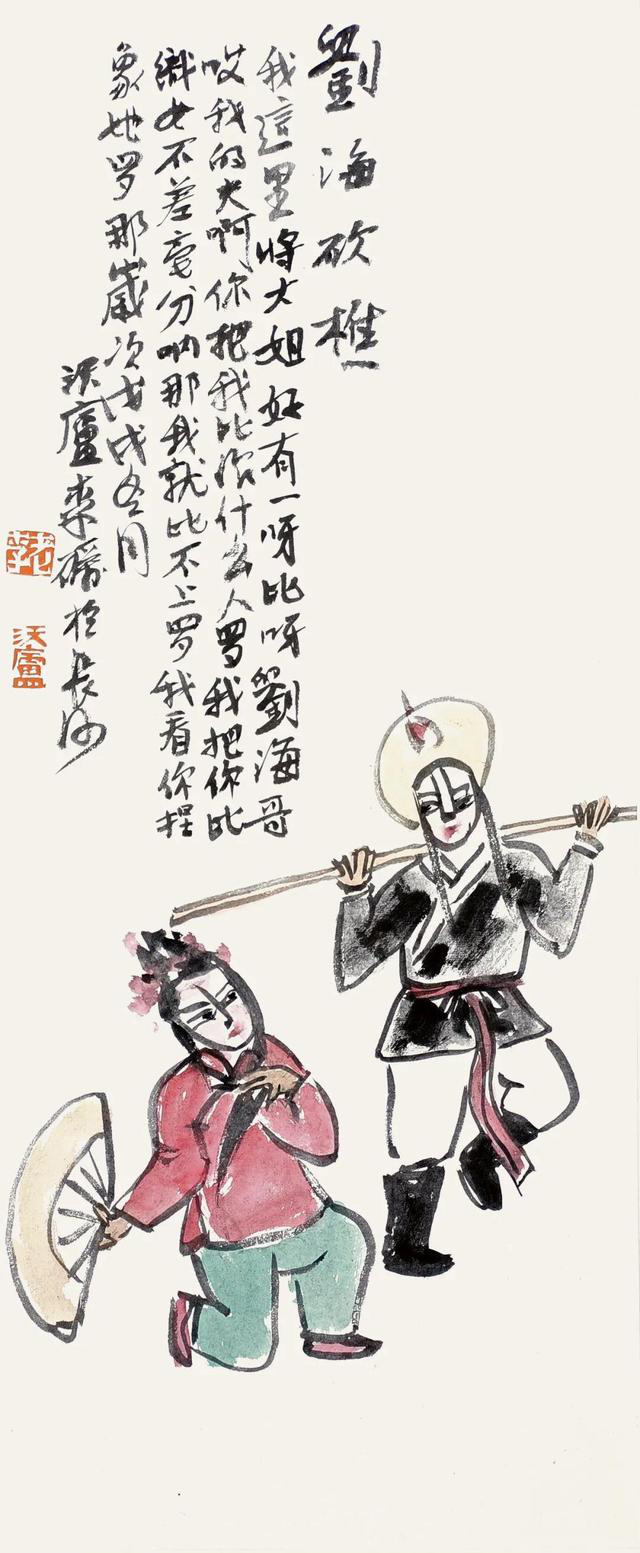 劉海砍樵
我這里將大姐好有一呀比呀劉海哥
哎我的夫啊你把我比做什么人罗我把你比
織女不差毫分呐那我就比不上罗我看你捏
象她罗那歲次戊戌冬月
沃廬於長沙
沃廬